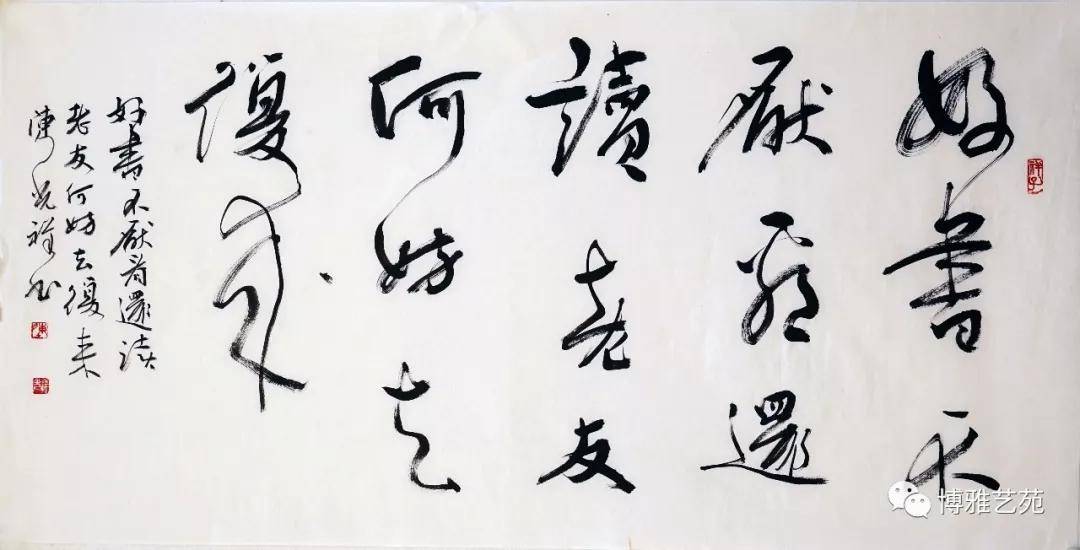 好書不
厭看還
讀老友
何妨去
復来
好書不厭看還读
老友何妨去復来
陳光祥书
博雅艺苑